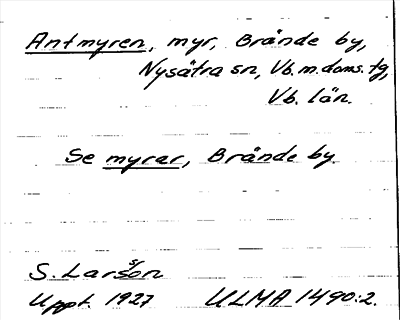 Antmyren, myr, Brände by,
Nysätra sn, Vb.m.doms.tg,
Vb. län.
Se myrar, Brände by.
S. Larsson
Uppt. 1927 ULMA 1490:2.